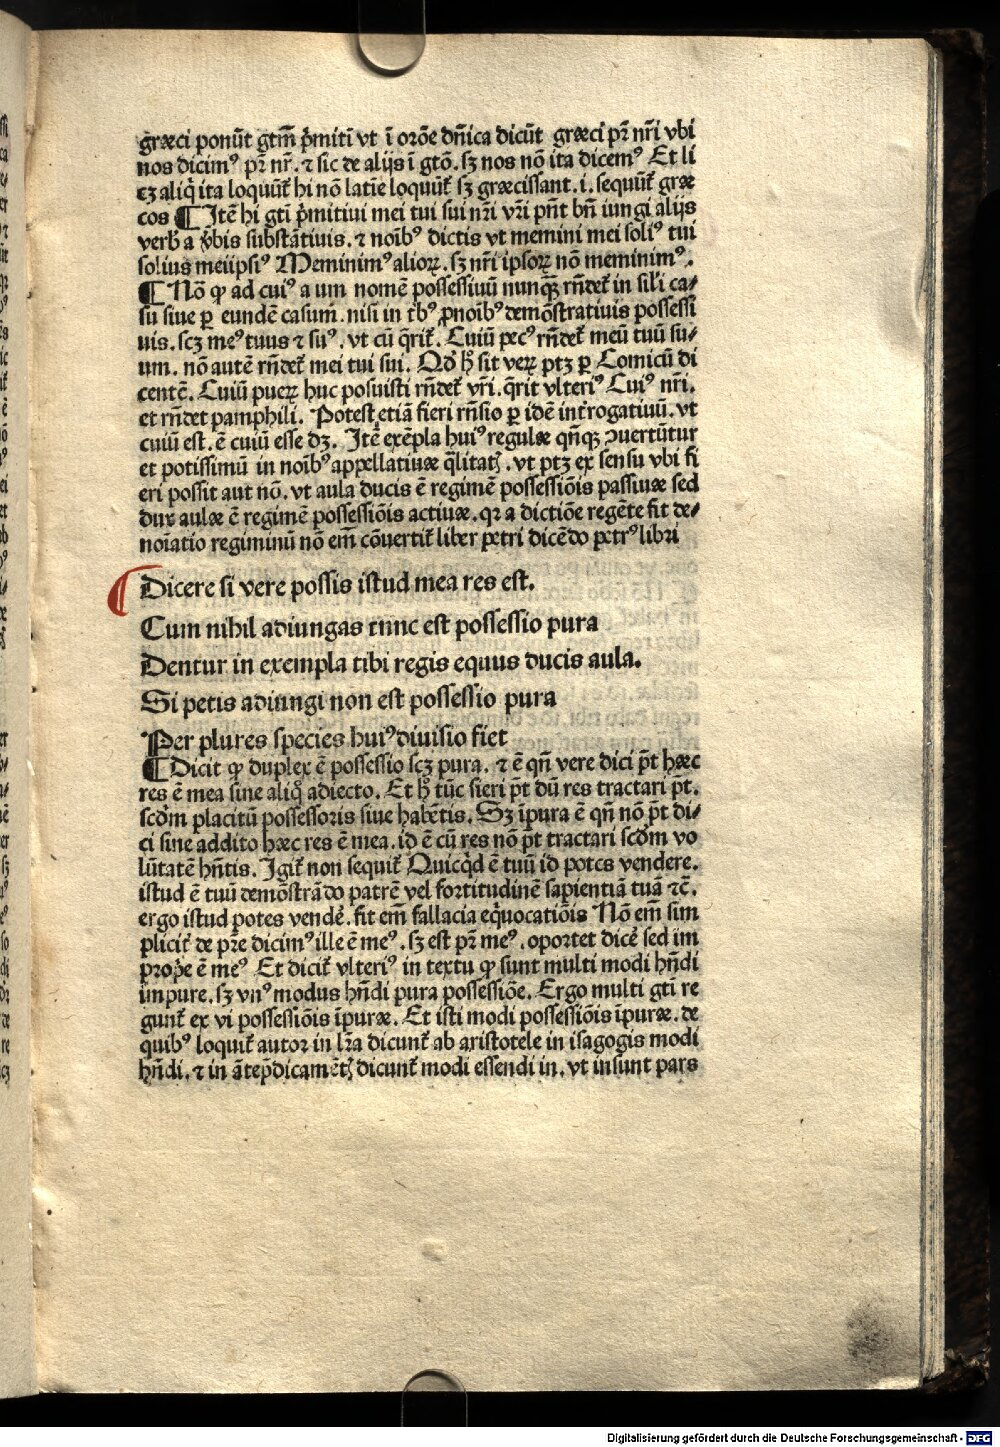 græci ponūt gtm̄ p̄miti vt ī orōe dn̄ica dicūt græci pr̄ nr̄i vbi
nos dicimꝰ pr̄ nr̄. ⁊ sic de alijs ī gtō. sꝫ nos nō ita dicemꝰ Et li
cꝫ aliq̄ ita loquūt᷑ hi nō latīe loquūt᷑ sꝫ græcissant .i. sequūt᷑ græ
cos ¶ Itē hi gtī p̄mitiui mei tui sui nr̄i vr̄i pn̄t bn̄ iungi alijs
verb̄ a v̄bis substātiuis. ⁊ noībꝰ dictis vt memini mei soliꝰ tui
solius meiipsiꝰ Meminimꝰ alioꝝ. sꝫ nr̄i ipsoꝝ nō meminimꝰ.
¶ Nō ꝙ ad cuiꝰ a um nomē possessiuū nunqꝫ rn̄det᷑ in sil̄i ca⸗
su siue ꝑ eundē casum. nisi in tb̄ꝰ ꝓnoībꝰ demōstratiuis possessi
uis. scꝫ meꝰ tuus ⁊ suꝰ. vt cū q̄rit᷑. Cuiū pecꝰ rn̄det᷑ meū tuū su⸗
um. nō autē rn̄det᷑ mei tui sui. Qd̄ h̄ sit veꝝ ptꝫ ꝑ Comicū di
centē. Cuiū pueꝝ huc posuisti rn̄det᷑ vr̄i. q̄rit vlteriꝰ Cuiꝰ nr̄i.
et rn̄det pamphili. Potest etiā fieri rn̄sio ꝑ idē introgatiuū. vt
cuiū est. ē cuiū esse dꝫ. Itē exēpla huiꝰ regulæ qn̄qꝫ ꝯuertūtur
et potissimū in noībꝰ appellatiuæ q̄litatꝭ. vt ptꝫ ex sensu vbi fi
eri possit aut nō. vt aula ducis ē regimē possessiōis passiuæ sed
dux aulæ ē regimē possessiōis actiuæ. qꝛ a dictiōe regēte fit de⸗
noīatio regiminū nō em̄ cōuertit᷑ liber petri dicēdo petrꝰ libri
Dicere si vere possis istud mea res est.
Cum nihil adiungas tunc est possessio pura
Dentur in exempla tibi regis equus ducis aula.
Si petis adiungi non est possessio pura
Per plures species huiꝰ diuisio fiet
¶ Dicit ꝙ duplex ē possessio scꝫ pura. ⁊ ē qn̄ vere dici pt̄ hæc
res ē mea sine aliq̊ adiecto. Et h̄ tūc fieri pt̄ dū res tractari pt̄.
scd̄m placitū possessoris siue habētis. Sꝫ īpura ē qn̄ nō pt̄ di⸗
ci sine addito hæc res ē mea. id ē cū res nō pt̄ tractari scd̄m vo
lūtatē hn̄tis. Igit᷑ non sequit᷑ Quicq̄d ē tuū id potes vendere.
istud ē tuū demōstrādo patrē vel fortitudinē sapientiā tuā ⁊c̄.
ergo istud potes vendē. fit em̄ fallacia eq̄uocatiōis Nō em̄ sim
plicit᷑ de pr̄e dicimꝰ ille ē meꝰ. sꝫ est pr̄ meꝰ. oportet dicē sed im
prop̄e ē meꝰ Et dicit᷑ vlteriꝰ in textu ꝙ sunt multi modi hn̄di
impure. sꝫ vnꝰ modus hn̄di pura possessiōe. Ergo multi gtī re
gunt᷑ ex vi possessiōis īpuræ. Et isti modi possessiōis īpuræ. de
quibꝰ loquit᷑ autor in lr̄a dicunt᷑ ab aristotele in isagogis modi
hn̄di. ⁊ in ātep̄dicamētꝭ dicunt᷑ modi essendi in. vt insunt pars
Digitalisierung gefördert durch die Deutsche Forschungsgemeinschaft - DFG